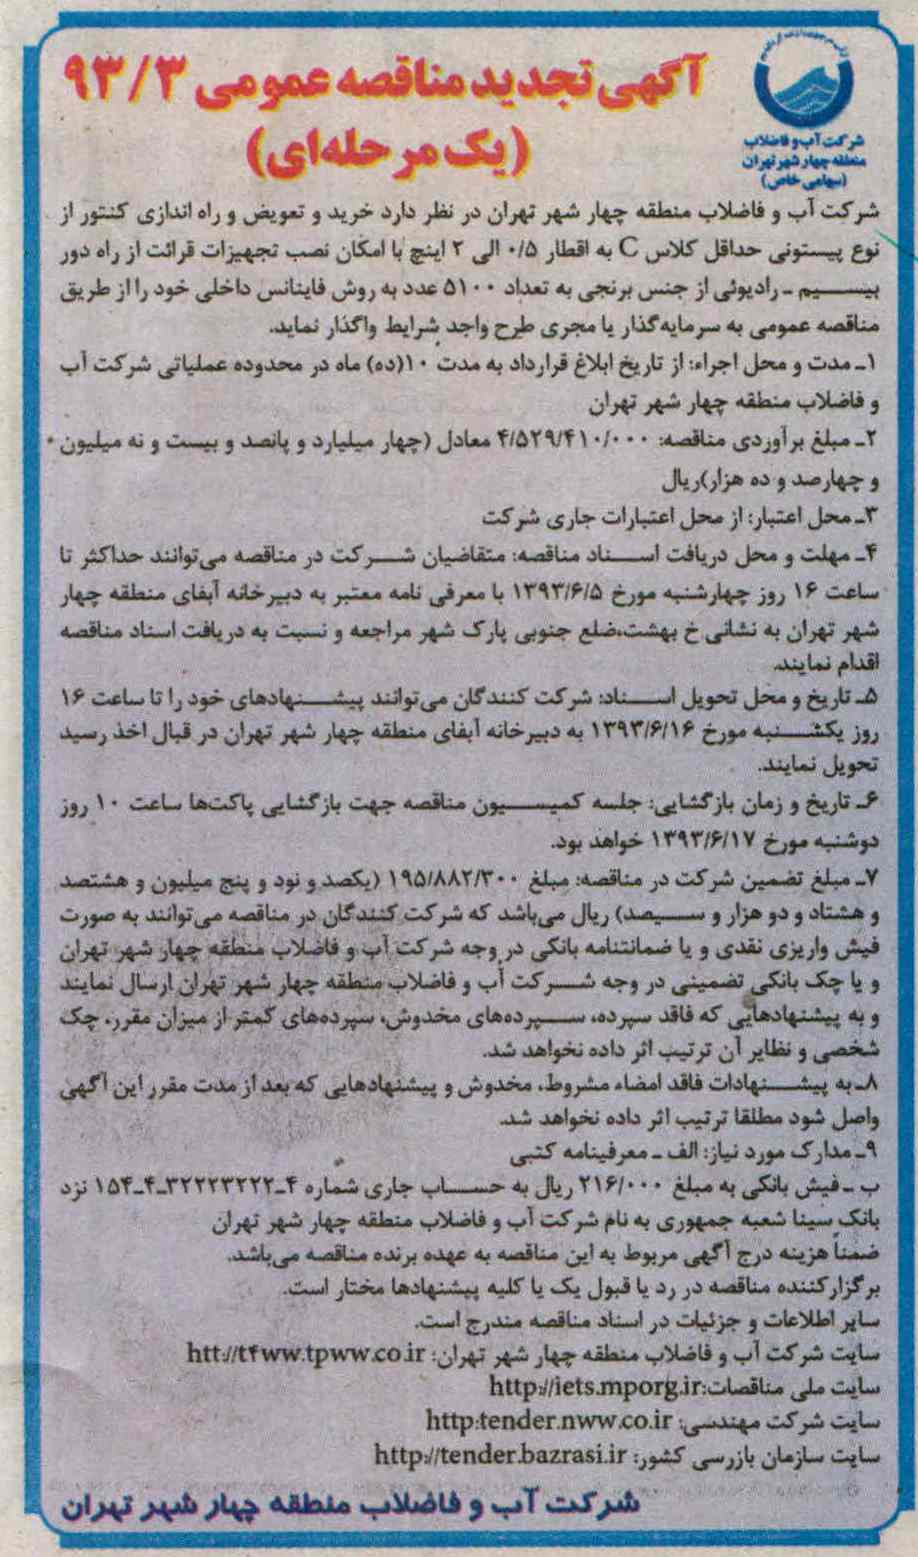 آگهی تجدید مناقصه عمومی ۹۳/۳
(یک مرحله‌ای)
شرکت آب و فاضلاب
منطقه چهار شهر تهران
(سهامی خاص)
شرکت آب و فاضلاب منطقه چهار شهر تهران در نظر دارد خرید و تعویض و راه اندازی کنتور از
نوع پیستونی حداقل کلاس C به اقطار ۰/۵ الی ۲ اینچ با امکان نصب تجهیزات قرائت از راه دور
بیسیم ـ رادیوئی از جنس برنجی به تعداد ۵۱۰۰ عدد به روش فاینانس داخلی خود را از طریق
مناقصه عمومی به سرمایه‌گذار یا مجری طرح واجد شرایط واگذار نماید.
۱ـ مدت و محل اجراء: از تاریخ ابلاغ قرارداد به مدت ۱۰(ده) ماه در محدوده عملیاتی شرکت آب
و فاضلاب منطقه چهار شهر تهران
۲ـ مبلغ برآوردی مناقصه: ۴/۵۲۹/۴۱۰/۰۰۰ معادل (چهار میلیارد و پانصد و بیست و نه میلیون
و چهارصد و ده هزار)ریال
۳ـ محل اعتبار: از محل اعتبارات جاری شرکت
۴ـ مهلت و محل دریافت اسناد مناقصه: متقاضیان شرکت در مناقصه می‌توانند حداکثر تا
ساعت ۱۶ روز چهارشنبه مورخ ۱۳۹۳/۶/۵ با معرفی نامه معتبر به دبیرخانه آبفای منطقه چهار
شهر تهران به نشانی خ بهشت،ضلع جنوبی پارک شهر مراجعه و نسبت به دریافت اسناد مناقصه
اقدام نمایند.
۵ـ تاریخ و محل تحویل اسناد: شرکت کنندگان می‌توانند پیشنهادهای خود را تا ساعت ۱۶
روز یکشنبه مورخ ۱۳۹۳/۶/۱۶ به دبیرخانه آبفای منطقه چهار شهر تهران در قبال اخذ رسید
تحویل نمایند.
۶ـ تاریخ و زمان بازگشایی: جلسه کمیسیون مناقصه جهت بازگشایی پاکت‌ها ساعت ۱۰ روز
دوشنبه مورخ ۱۳۹۳/۶/۱۷ خواهد بود.
۷ـ مبلغ تضمین شرکت در مناقصه: مبلغ ۱۹۵/۸۸۲/۳۰۰ (یکصد و نود و پنج میلیون و هشتصد
و هشتاد و دو هزار و سیصد) ریال می‌باشد که شرکت کنندگان در مناقصه می‌توانند به صورت
فیش واریزی نقدی و یا ضمانتنامه بانکی در وجه شرکت آب و فاضلاب منطقه چهار شهر تهران
و یا چک بانکی تضمینی در وجه شرکت آب و فاضلاب منطقه چهار شهر تهران ارسال نمایند
و به پیشنهادهایی که فاقد سپرده، سپرده‌های مخدوش، سپرده‌های کمتر از میزان مقرر، چک
شخصی و نظایر آن ترتیب اثر داده نخواهد شد.
۸ـ به پیشنهادات فاقد امضاء مشروط، مخدوش و پیشنهادهایی که بعد از مدت مقرر این آگهی
واصل شود مطلقا ترتیب اثر داده نخواهد شد.
۹ـ مدارک مورد نیاز: الف ـ معرفینامه کتبی
ب ـ فیش بانکی به مبلغ ۲۱۶/۰۰۰ ریال به حساب جاری شماره ۴ـ۳۲۲۲۳۲۲۲ـ۴ـ۱۵۴ نزد
بانک سینا شعبه جمهوری به نام شرکت آب و فاضلاب منطقه چهار شهر تهران
ضمناً هزینه درج آگهی مربوط به این مناقصه به عهده برنده مناقصه می‌باشد.
برگزارکننده مناقصه در رد یا قبول یک یا کلیه پیشنهادها مختار است.
سایر اطلاعات و جزئیات در اسناد مناقصه مندرج است.
سایت شرکت آب و فاضلاب منطقه چهار شهر تهران: htt://t۴ww.tpww.co.ir
سایت ملی مناقصات:http://iets.mporg.ir
سایت شرکت مهندسی: http:tender.nww.co.ir
سایت سازمان بازرسی کشور: http://tender.bazrasi.ir
شرکت آب و فاضلاب منطقه چهار شهر تهران